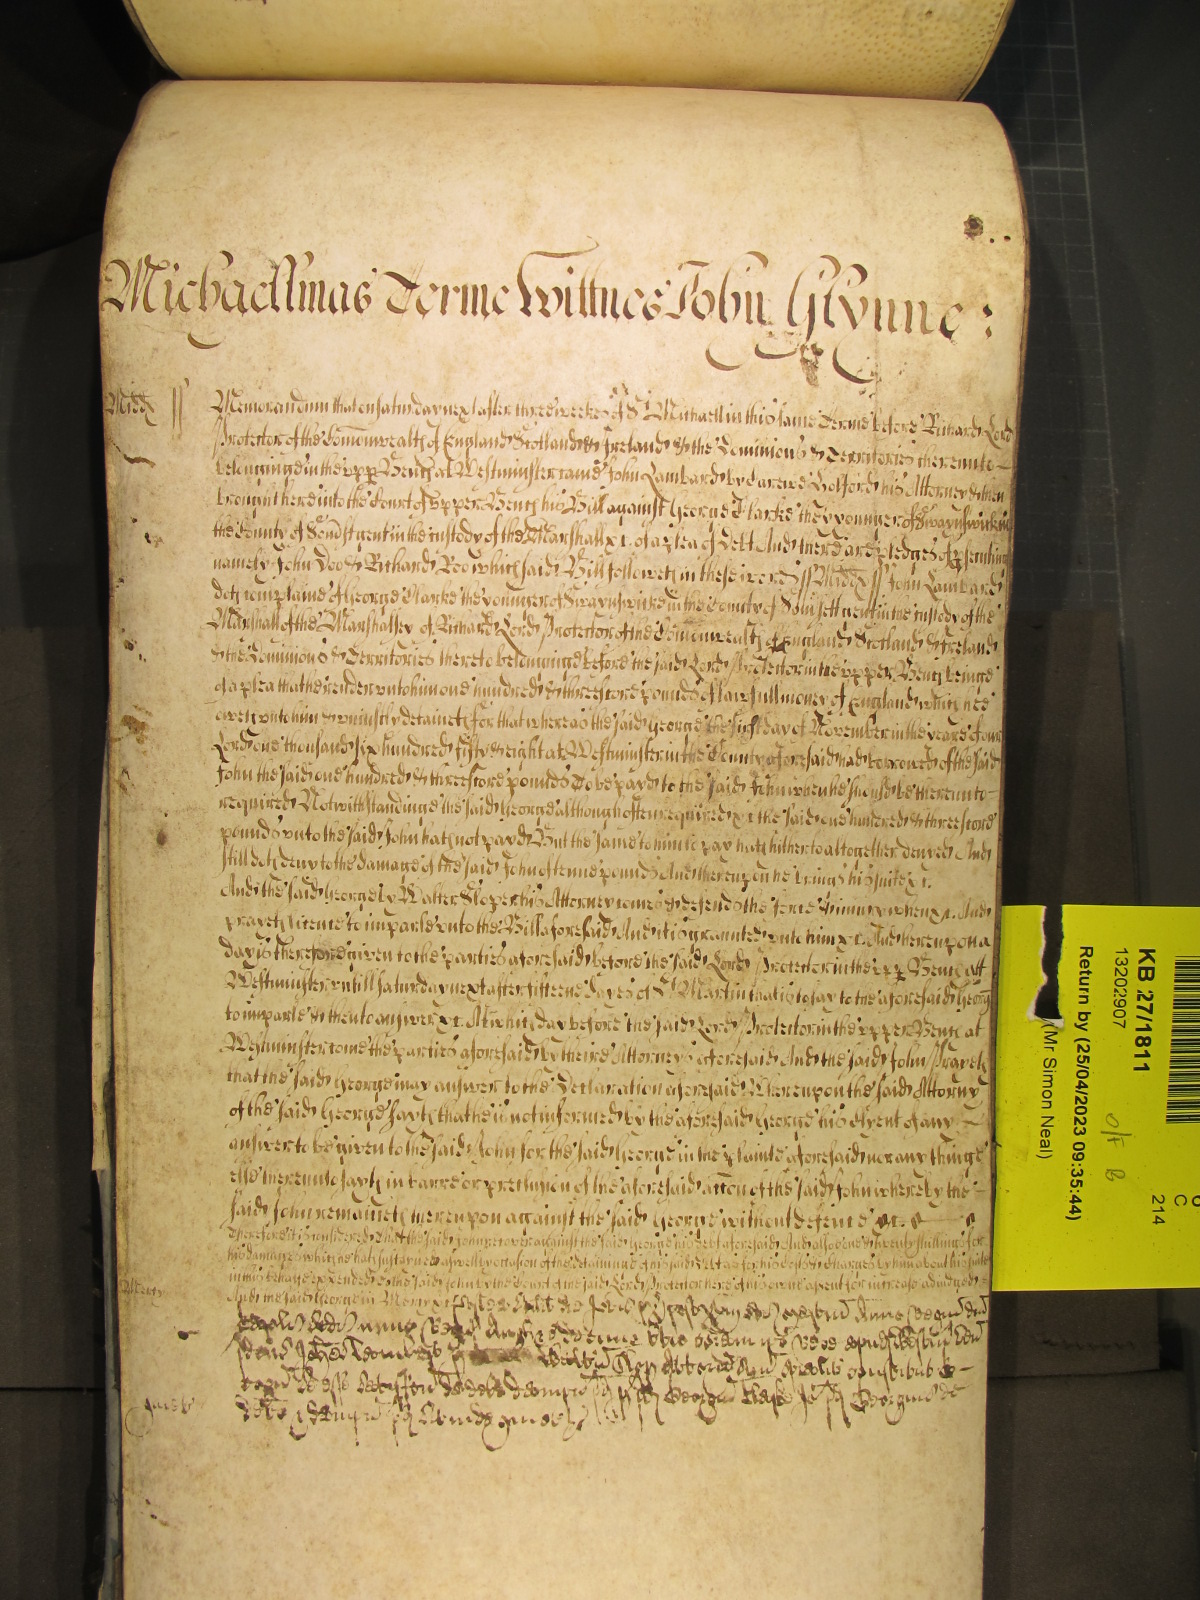 Michaellmas Terme Wittnes John Glynne :
Midd ss Memorandum that on saturday next after three weekes of St Michaell in this same Terme before Richard Lord
Protector of the Comonwealth of England Scotland & Ireland & the Dominions & Territories thereunto
belonginge in the upp Bench at Westminster came John Lambard by Carewe his Attorney & then
brought here into the Court of Upper Bench his Bill against George Clarke the younger of Swaynswicke in
the County of Somsett gent in the custody of the Marshall &c. of a plea of Debt And there are pledges of psecuting
namely John Doo & Richard Roo which said Bill followeth in these words ss Midd ss John Lambard
doth complaine of George Clarke the younger of Swaynswicke in the County of Somsett gent in the custody of the
Marshall of the Marshalsey of Richard Lord Protector of the Comonwealth of England Scotland & Ireland
& the Dominions & Territories thereto belonginge before the said Lord Protector in the upper Bench beinge
of a plea that he render unto him one hundred & threescore pounds of lawfull money of England which hee
oweth unto him & uniustly detaineth for that whereas the said George the first day of November in the yeare of our
Lord one thousand six hundred fifty & eight at Westminster in the County aforesaid had borrowed of the said
John the said one hundred & threescore pounds to be payd to the said John when he should be thereunto
required Notwithstandinge the said George although often required &c the said one hundred & threescore
pounds unto the said John hath not payd But the same to him to pay hath hitherto altogether denyed And
still doth deny to the damage of the said John of tenne pounds And thereupon he brings his suite &c.
And the said George by Walter Sloper his Attorney comes & defends the force & iniury when &c. And
prayeth licence to imparle unto the Bill aforesaid And it is graunted unto him &c. And hereupon a
day is therefore given to the parties aforesaid before the said Lord Protector in the upp Bench att
Westminster untill saturday next after fifteene dayes of St Martin that is to say to the aforesaid George
to imparle & then to answer &c. At which day before the said Lord Protector in the upper Bench at
Westminster come the parties aforesaid by theire Attorneys aforesaid And the said John Prayeth
that the said George may answer to the Declaration aforesaid Whereupon the said Attorny
of the said George sayth that he is not informed by the aforesaid George his Clyent of any
answer to be given to the said John for the said George in the plainte aforesaid nor any thinge
else thereunto sayth in barre or preclusion of the aforesaid accon of the said John whereby the
said John remaineth thereupon against the said George without defence &c.
Therefore it is considered that the said John recover against the said George his debt aforesaid And alsoe one & twenty shillings for
his damages which he hath sustayned aswell by occasion of the detaininge of his said debt as for his costs & charges by him about his suite
in this behalfe expended to the said John by the Court of the said Lord Protector here of his owne assent for increase adiudged
Mercy And the said George in Mercy &c
KB 27/1811
13202907
Return by (25/04/2023 09:35:44)
(Mr Simon Neal)
O/F B
C
214